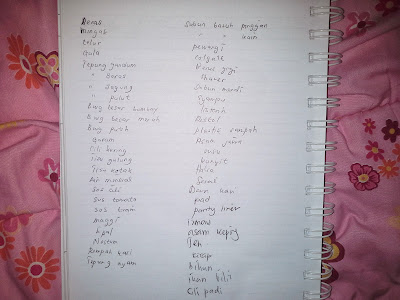 Beras
Minyak
Telur
Gula
Tepung gandum
" beras
" jagung
" pulut
Bwg besar
Bwg besar merah
Bwg putih
Garam
Cili kering
Tisu gulung
Tisu kotak
Air mineral
Sos cili
Sos tomato
Sos tiram
Maggi
Epal
Nestum
Rempah kari
Tepung ayam
Sabun basuh pinggan
" " kain
pewangi
Colgate
Berus gigi
Shaver
Sabun mandi
Syampu
Dettol
plastik sampah
Asam jawa
susu
kunyit
Halia
Serai
Daun kari
pad
panty liner
limau
asam keping
Teh
kicap
Bihun
ikan bili
Cili padi